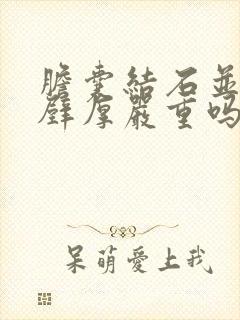 膽囊結石並
壁厚嚴重嗎
呆萌愛上我